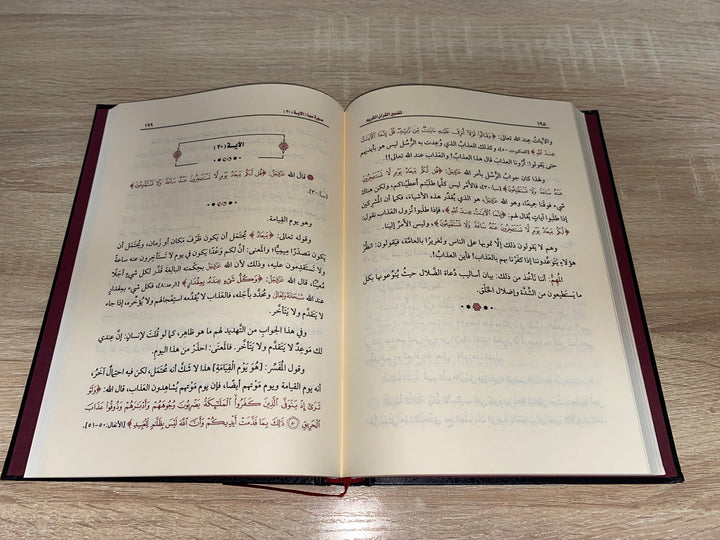 ١٩٨ تفسير القرآن الكريم
والآياتُ عند الله تعالى: ﴿وَقَالُوا لَوْلَا أُنزِلَ عَلَيْهِ آيَاتٌ مِّن رَّبِّهِ قُلْ إِنَّمَا الْآيَاتُ
عِندَ اللَّهِ﴾ [العنكبوت:٥٠] وكذلك العذابُ الذي وُعِدت به الرُّسل ليس هو بأيديهم
حتى يقولوا: أَرُونا العذابَ قال هذا العذابُ! والعذاب عند الله تعالى!!.
وهذا كان جوابُ الرُّسل بأمر الله عَزَّوَجَلَّ: ﴿قُل لَّكُم مِّيعَادُ يَوْمٍ لَّا تَسْتَأْخِرُونَ
عَنْهُ سَاعَةً وَلَا تَسْتَقْدِمُونَ﴾ [سبأ:٣٠]، فالأمر ليس كلَّما طلبتم أعطيناكم، ولكن هناك
شيء فوقنا جميعًا، وهو الله عَزَّوَجَلَّ، هو الذي يُقدِّر هذه الأشياءَ، فكما أن المُشركين
إذا طلَبوا آياتٍ يُقال لهم: ﴿إِنَّمَا الْآيَاتُ عِندَ اللَّهِ﴾، فإذا طلَبوا نُزول العَذاب نَقول:
﴿لَّكُم مِّيعَادُ يَوْمٍ لَّا تَسْتَأْخِرُونَ عَنْهُ سَاعَةً وَلَا تَسْتَقْدِمُونَ﴾، وليس الأمرُ إلينا.
وهم لا يَقولون ذلك إلَّا تمويهًا على الناس وتَغريرًا بالعامَّة، فيَقولون: انظُرْ
هؤلاءِ يَتوعَّدوننا إذا كفَرنا بهم بالعذاب! فأين العذابُ!.
المُهِمُّ: أننا نَأخُذ من ذلك: بيان أساليب دُعاة الضَّلال حيث يُمَوِّهون بكل
ما يَستَطيعون من الشُّدَّة وإضلال الخَلْق.
سورة سبأ (الآية: ٣٠) ١٩٩
الآية: (٣٠)
قال الله عَزَّوَجَلَّ: ﴿قُل لَّكُم مِّيعَادُ يَوْمٍ لَّا تَسْتَأْخِرُونَ عَنْهُ سَاعَةً وَلَا تَسْتَقْدِمُونَ﴾
[سبأ:٣٠].
وهو يوم القِيامة.
وقوله تعالى: ﴿مِيعَادُ﴾ يُحتَمَل أن يَكون ظَرْفَ مَكان أو زَمان، ويُحتَمَل أن
يَكون مَصدَرًا مِيميًّا؛ والمعنى: أنَّ لكم وَعْدًا يَكون في يوم لا تَستَأخِرون عنه ساعةً
ولا تَستَقدِمون عليه، وذلك لأن الله عَزَّوَجَلَّ بحِكْمته البالِغة قدَّر لكل شيءٍ أجَلًا
مُعيَّنًا، قال الله عَزَّوَجَلَّ: ﴿وَكُلُّ شَيْءٍ عِندَهُ بِمِقْدَارٍ﴾ [الرعد:٨]، فكل شيءٍ بمِقدار
عند الله سُبْحَانَهُ وَتَعَالَى ومُحدَّد بأَجَله، فالعَذاب لا يُقدِّمه استِعجالهم ولا يُؤخِّره، إذا جاء
لا يَتقَدَّم ولا يَتأخَّر.
وفي هذا الجوابِ من التَّهديد لهم ما هو ظاهِر، كما لو قُلتَ لإنسان: إنَّ عِندي
لك مَوعِدًا لا يَتقدَّم ولا يَتأخَّر. فالمعنَى: احذَرْ من هذا اليومِ.
وقول المُفَسِّر: [هُوَ يَوْمُ القِيَامَةِ] هذا لا شَكَّ أنه مُحتَمَل، لكن فيه احتِمال آخَرُ،
أنه يوم القِيامة ويوم مَوْتهم أيضًا، فإن يوم مَوْتهم يُشاهِدون العَذاب، قال الله: ﴿وَلَوْ
تَرَىٰ إِذْ يَتَوَفَّى الَّذِينَ كَفَرُوا الْمَلَائِكَةُ يَضْرِبُونَ وُجُوهَهُمْ وَأَدْبَارَهُمْ وَذُوقُوا عَذَابَ
الْحَرِيقِ ۝ ذَٰلِكَ بِمَا قَدَّمَتْ أَيْدِيكُمْ وَأَنَّ اللَّهَ لَيْسَ بِظَلَّامٍ لِّلْعَبِيدِ﴾ [الأنفال:٥٠-٥١].